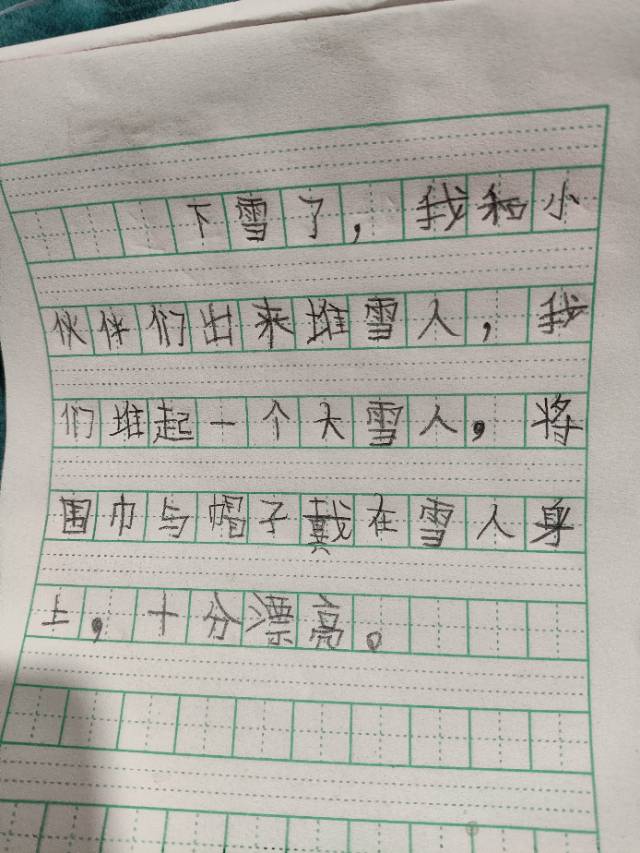 下雪了，我和小
伙伴们出来堆雪人，我
们堆起一个大雪人，将
围巾与帽子戴在雪人身
上，十分漂亮。